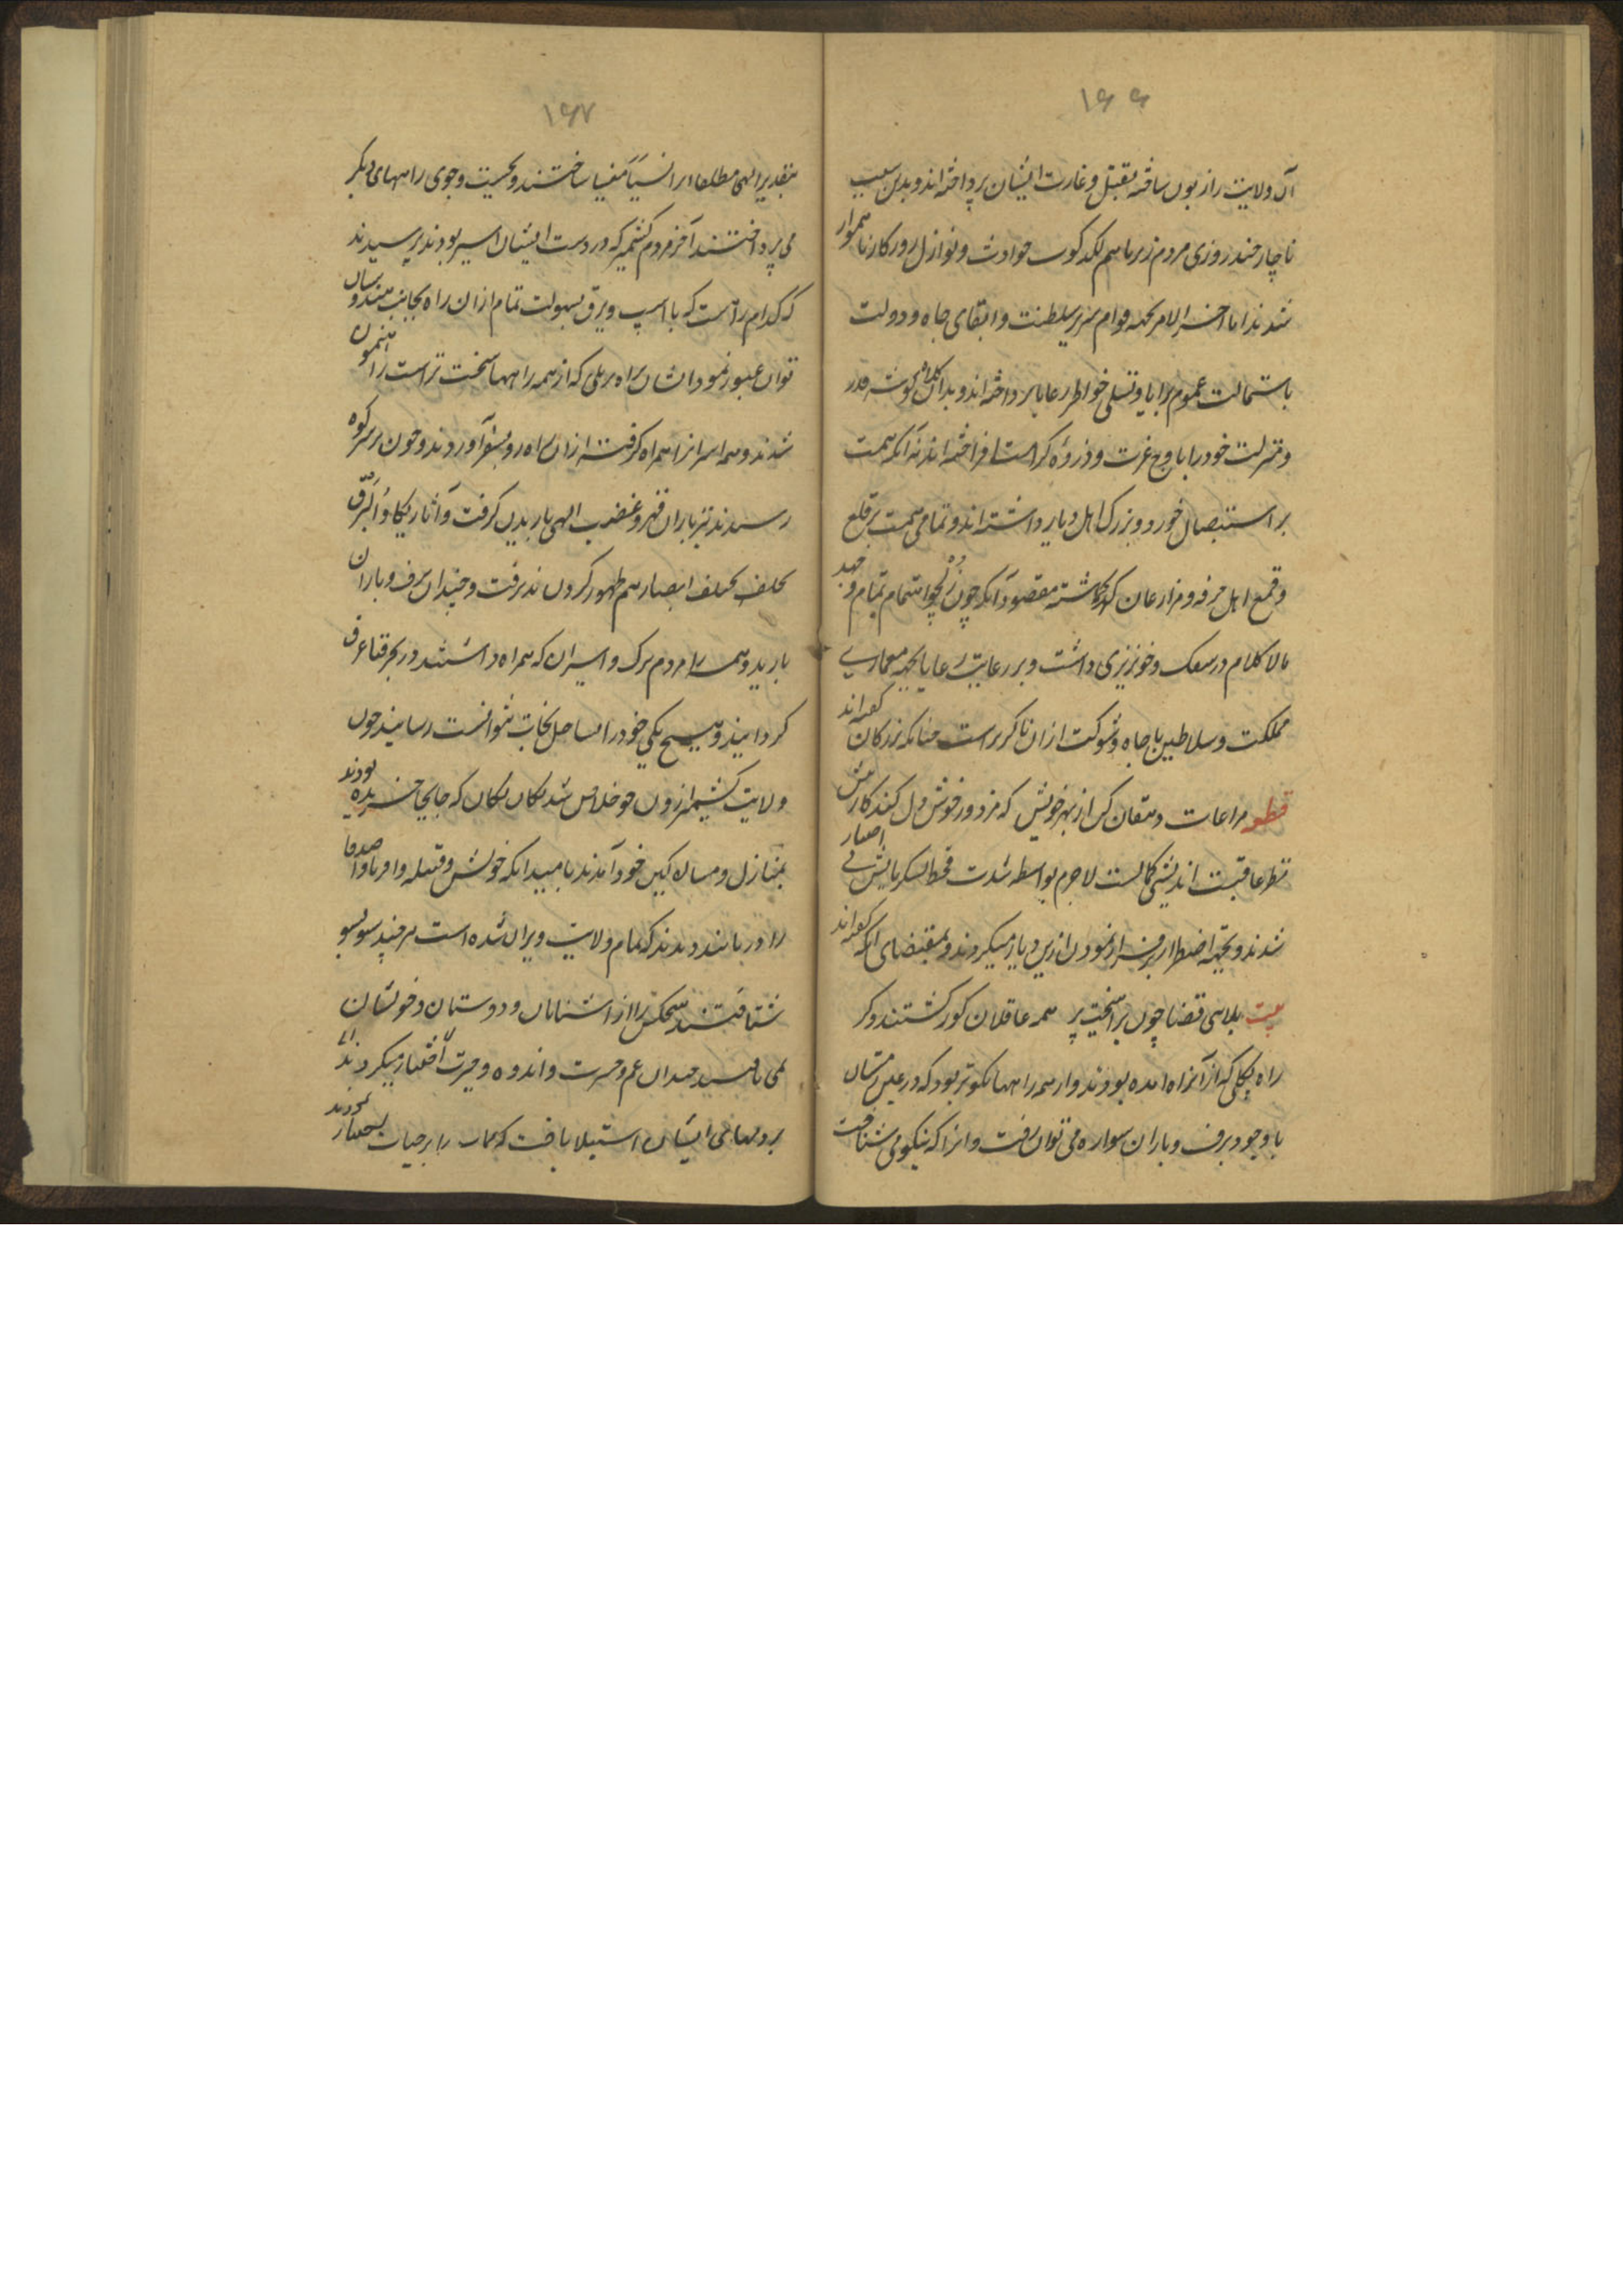 ۱۶۶
آن ولایت را زبون ساخته بقتل و غارت ایشان پرداخته اند و بدین سبب
ناچار چند روزی مردم زیر با سم لکد کوب حوادث و نوازل روزکار ناهموار
شدند اما اخر الامر بجهه قوام سریر سلطنت و ابقای جاه و دولت
باستمالت عموم برایا و تسلی خواطر رعایا پرداخته اند و بدان کلاه کوشه قدر
و منزلت خود را باوج عزت و ذروهٔ کرامت افراخته اند نه آنکه همت
بر استیصال خورد و بزرک اهل دیار داشته اند و تمامی همت بر قلع
و قمع اهل حرفه و مزارعان کماشته مقصود آنکه چون ذولچو اهتمام تمام و جهد
مالا کلام در سفک و خونریزی داشت و بر رعایت رعایا بجهه معماری
مملکت و سلاطین با جاه و شوکت را ازان ناکزیر است چنانکه بزرکان کفته اند
قطعه مراعات دهقان کن از بهر خویش که مزدور خوش دل کند کار بیش
نظر عاقبت اندیشی لاجرم بواسطه شدت قحط لشکریانش بی اختیار
شدند و بجهه اضطرار فرار نمودن ازین دیار میکردند و بمقتضای آنکه کفته اند
بیت بلاسی قضا چون برانیخت پر همه عاقلان کور کشتند و کر
راه پکلی که از آنراه امده بودند و از همه راهها نکوتر بود که در عین زمستان
با وجود برف و باران سواره می توان رفت و انرا که نیکو می شناخت
۱۶۷
بتقدیر الهی مطلقا انرا نسیا منسیا ساختند و بجست و جوی راههای دیکر
می پرداختند آخر مردم کشمیر که در دست ایشان اسیر بودند پرسیدند
که کدام راه است که با اسپ و یرق بسهولت تمام ازان راه بجانب هندوستان
توان عبور نمود ایشان براه بربلی که از همه راهها سخت تر است راهنمون
شدند و همه اسرا را همراه کرفته ازان راه رو بسفر آوردند و چون بر سر کوه
رسیدند تیر باران قهر و غضب الهی باریدن کرفت و آثار یکاد البرق
یخطف ابصارهم ظهور کردن پذیرفت و چندان برف و باران
بارید و همه را مردم ترک و اسیران که همراه داشتند در بحر فنا غرق
کردانید و هیچ یکی خود را بساحل نجات نتوانست رسانید چون
ولایت کشمیر از ذولچو خلاص شد یکان یکان که جابجا خزیده بودند
بمنازل و مساکین خود آمدند بامید انکه خویش و قبیله و اقربا و اصدقا
را دریابند دیدند که تمام ولایت ویران شده است هر چند سو بسو
شتافتند هیچکس را از آشنایان و دوستان و خویشان
نمی یافتند چندان غم و حسرت و اندوه و حیرت
بر دلهای ایشان استیلا یافت که ممات را بر حیات اختیار میکردند